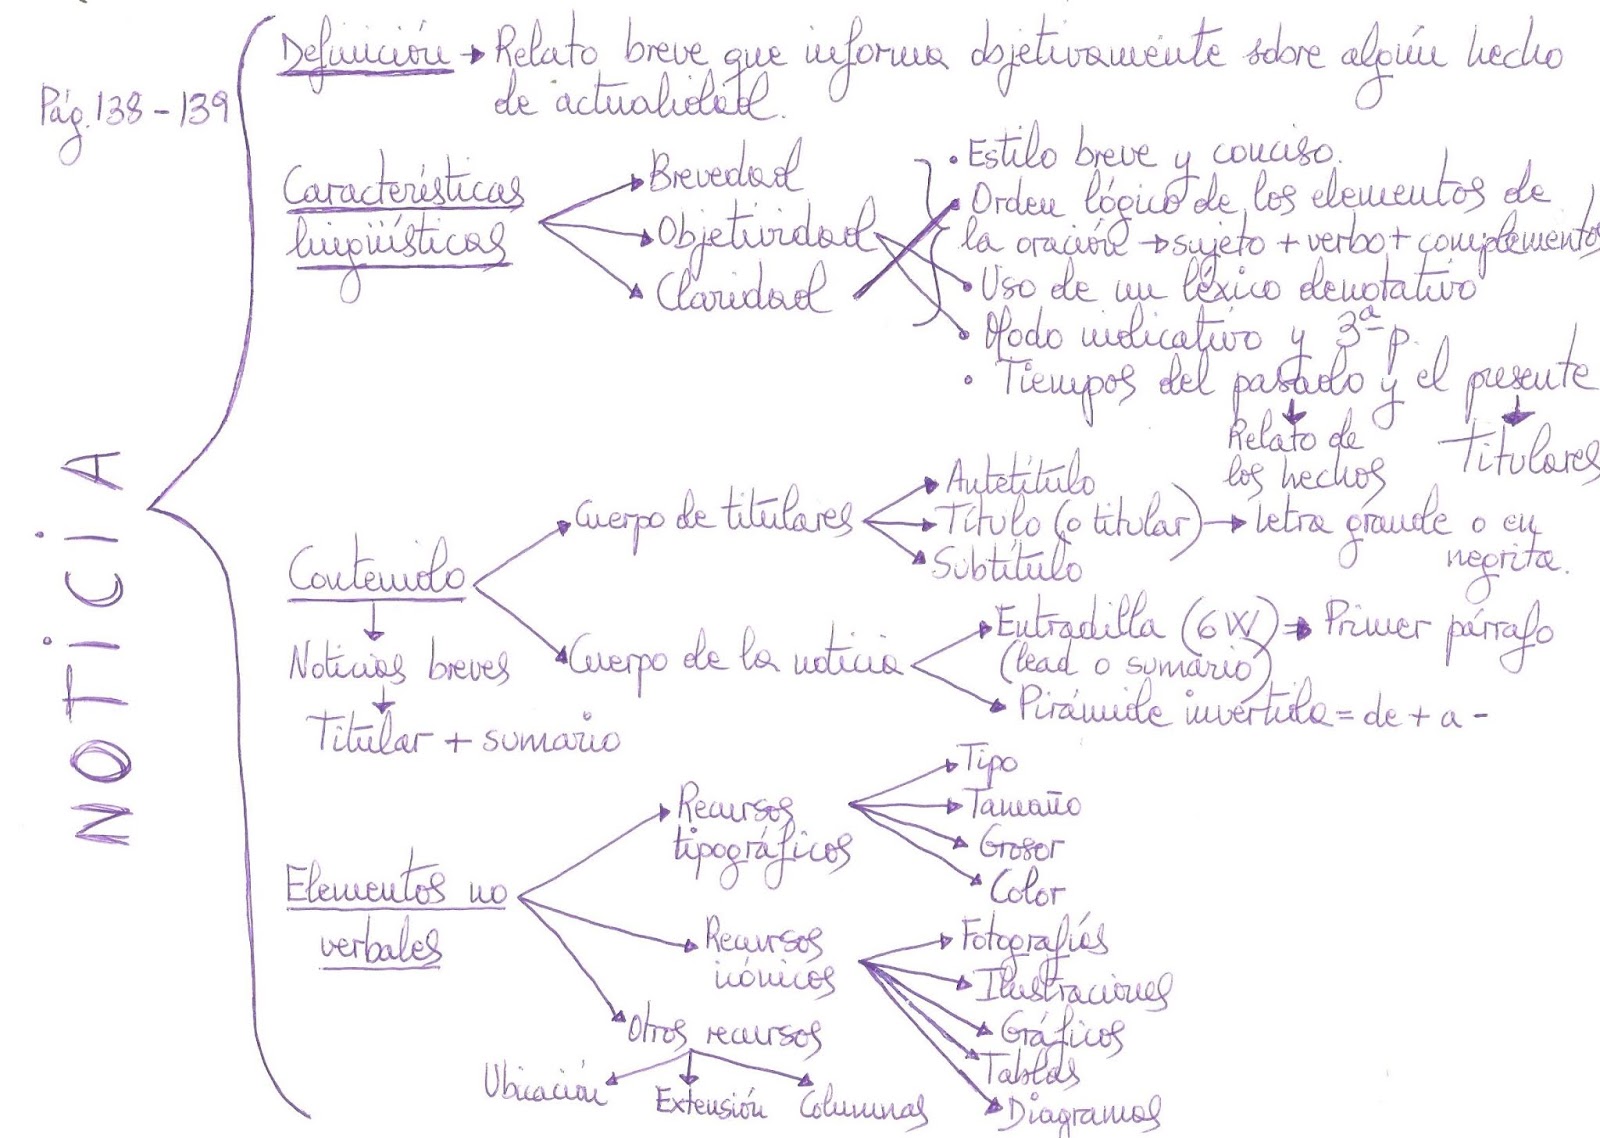 NOTICIA
Pág. 138 - 139
Definición → Relato breve que informa objetivamente sobre algún hecho
de actualidad.
Características
lingüísticas
Brevedad
Objetividad
Claridad
• Estilo breve y conciso.
• Orden lógico de los elementos de
la oración → sujeto + verbo + complementos
• Uso de un léxico denotativo
• Modo indicativo y 3ª p.
• Tiempos del pasado y el presente
Relato de
los hechos
Titulares
Contenido
Noticias breves
Titular + sumario
Cuerpo de titulares
Antetítulo
Título (o titular) → letra grande o en
negrita.
Subtítulo
Cuerpo de la noticia
Entradilla (6W) → Primer párrafo
(lead o sumario)
Pirámide invertida = de + a -
Elementos no
verbales
Recursos
tipográficos
Tipo
Tamaño
Grosor
Color
Recursos
icónicos
Fotografías
Ilustraciones
Gráficos
Tablas
Diagramas
Otros recursos
Ubicación
Extensión
Columnas